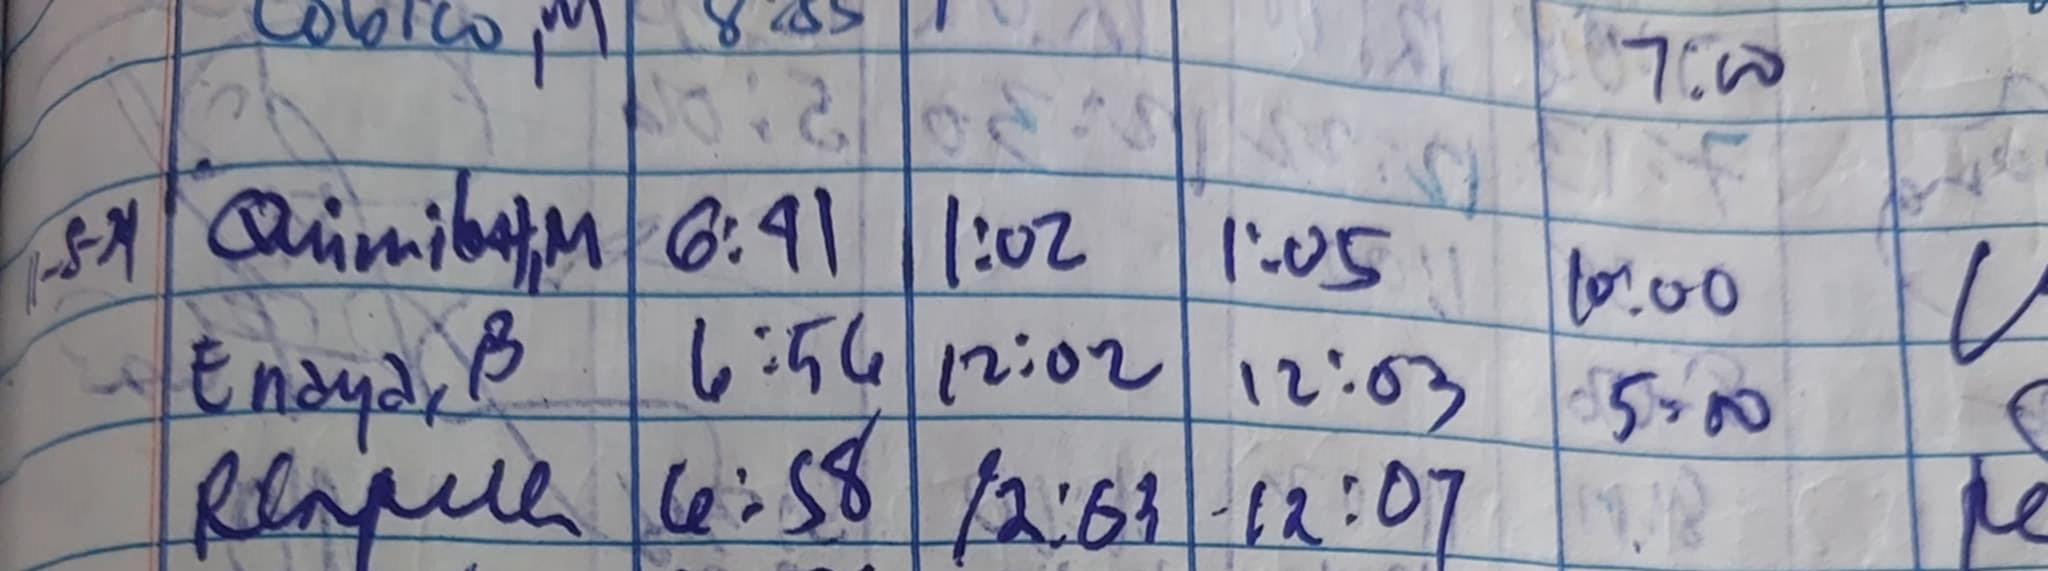 Cobico, M 8:55 7:00
1-5-24 Quimibat, M 6:41 1:02 1:05 10:00
Enaya, B 6:56 12:02 12:03 5:00
6:58 12:03 12:07